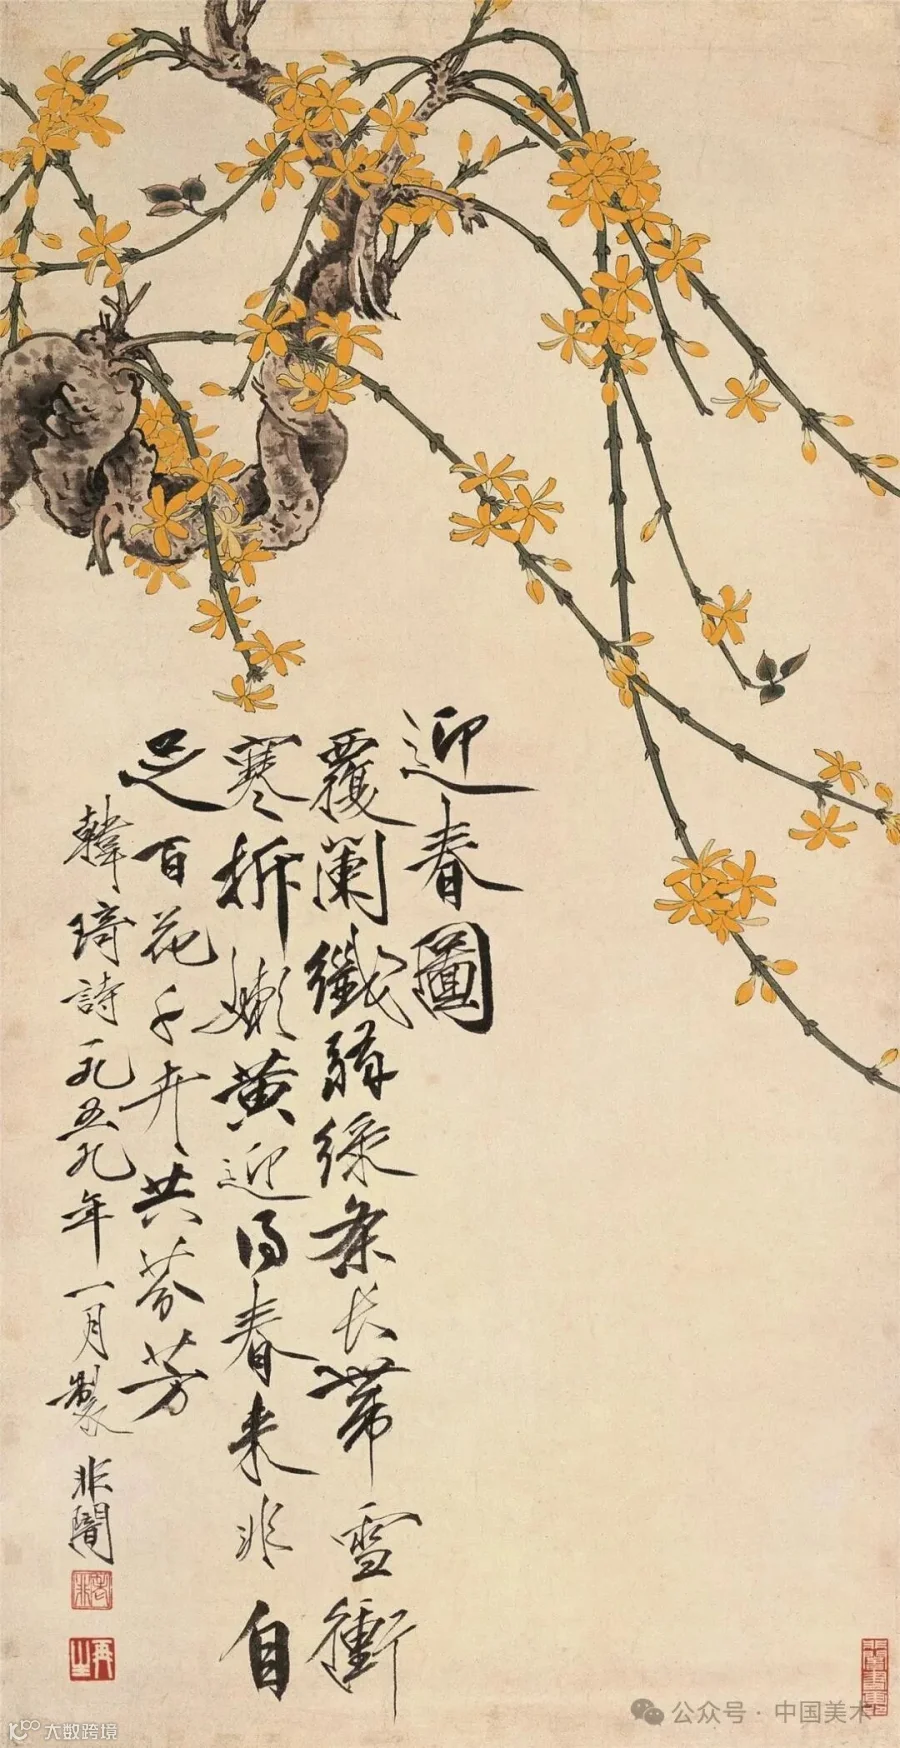 迎春圖
覆闌纖弱綠条长帶雪衝
寒拆嫩黄迎得春来非自
足百花千卉共芬芳
韓琦詩一九五九年一月製非闇
再生
公众号 · 中国美术
大数跨境